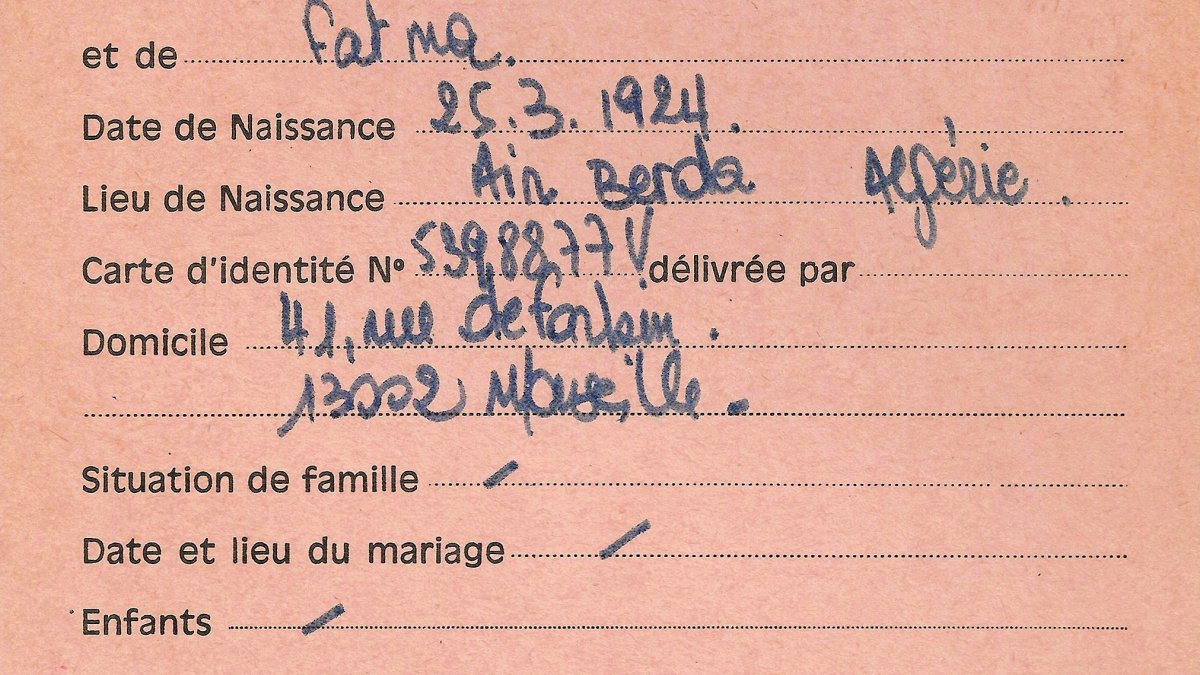 et de Fatma.
Date de Naissance 25.3.1924.
Lieu de Naissance Ain Berda Algérie.
Carte d'identité N° 5398877V délivrée par
Domicile 41, rue de Forbin.
13002 Marseille.
Situation de famille /
Date et lieu du mariage /
Enfants /